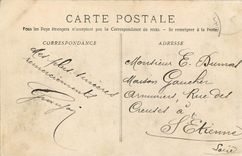 CARTE POSTALE
Tous les Pays étrangers n'acceptent pas la Correspondance au recto. - Se renseigner à la Poste.
CORRESPONDANCE
mes plus sincères
remerciements
ADRESSE
Monsieur E. Dumas
Maison Gaucher
Armuriers, Rue des
Creuses à
St Etienne
Loire